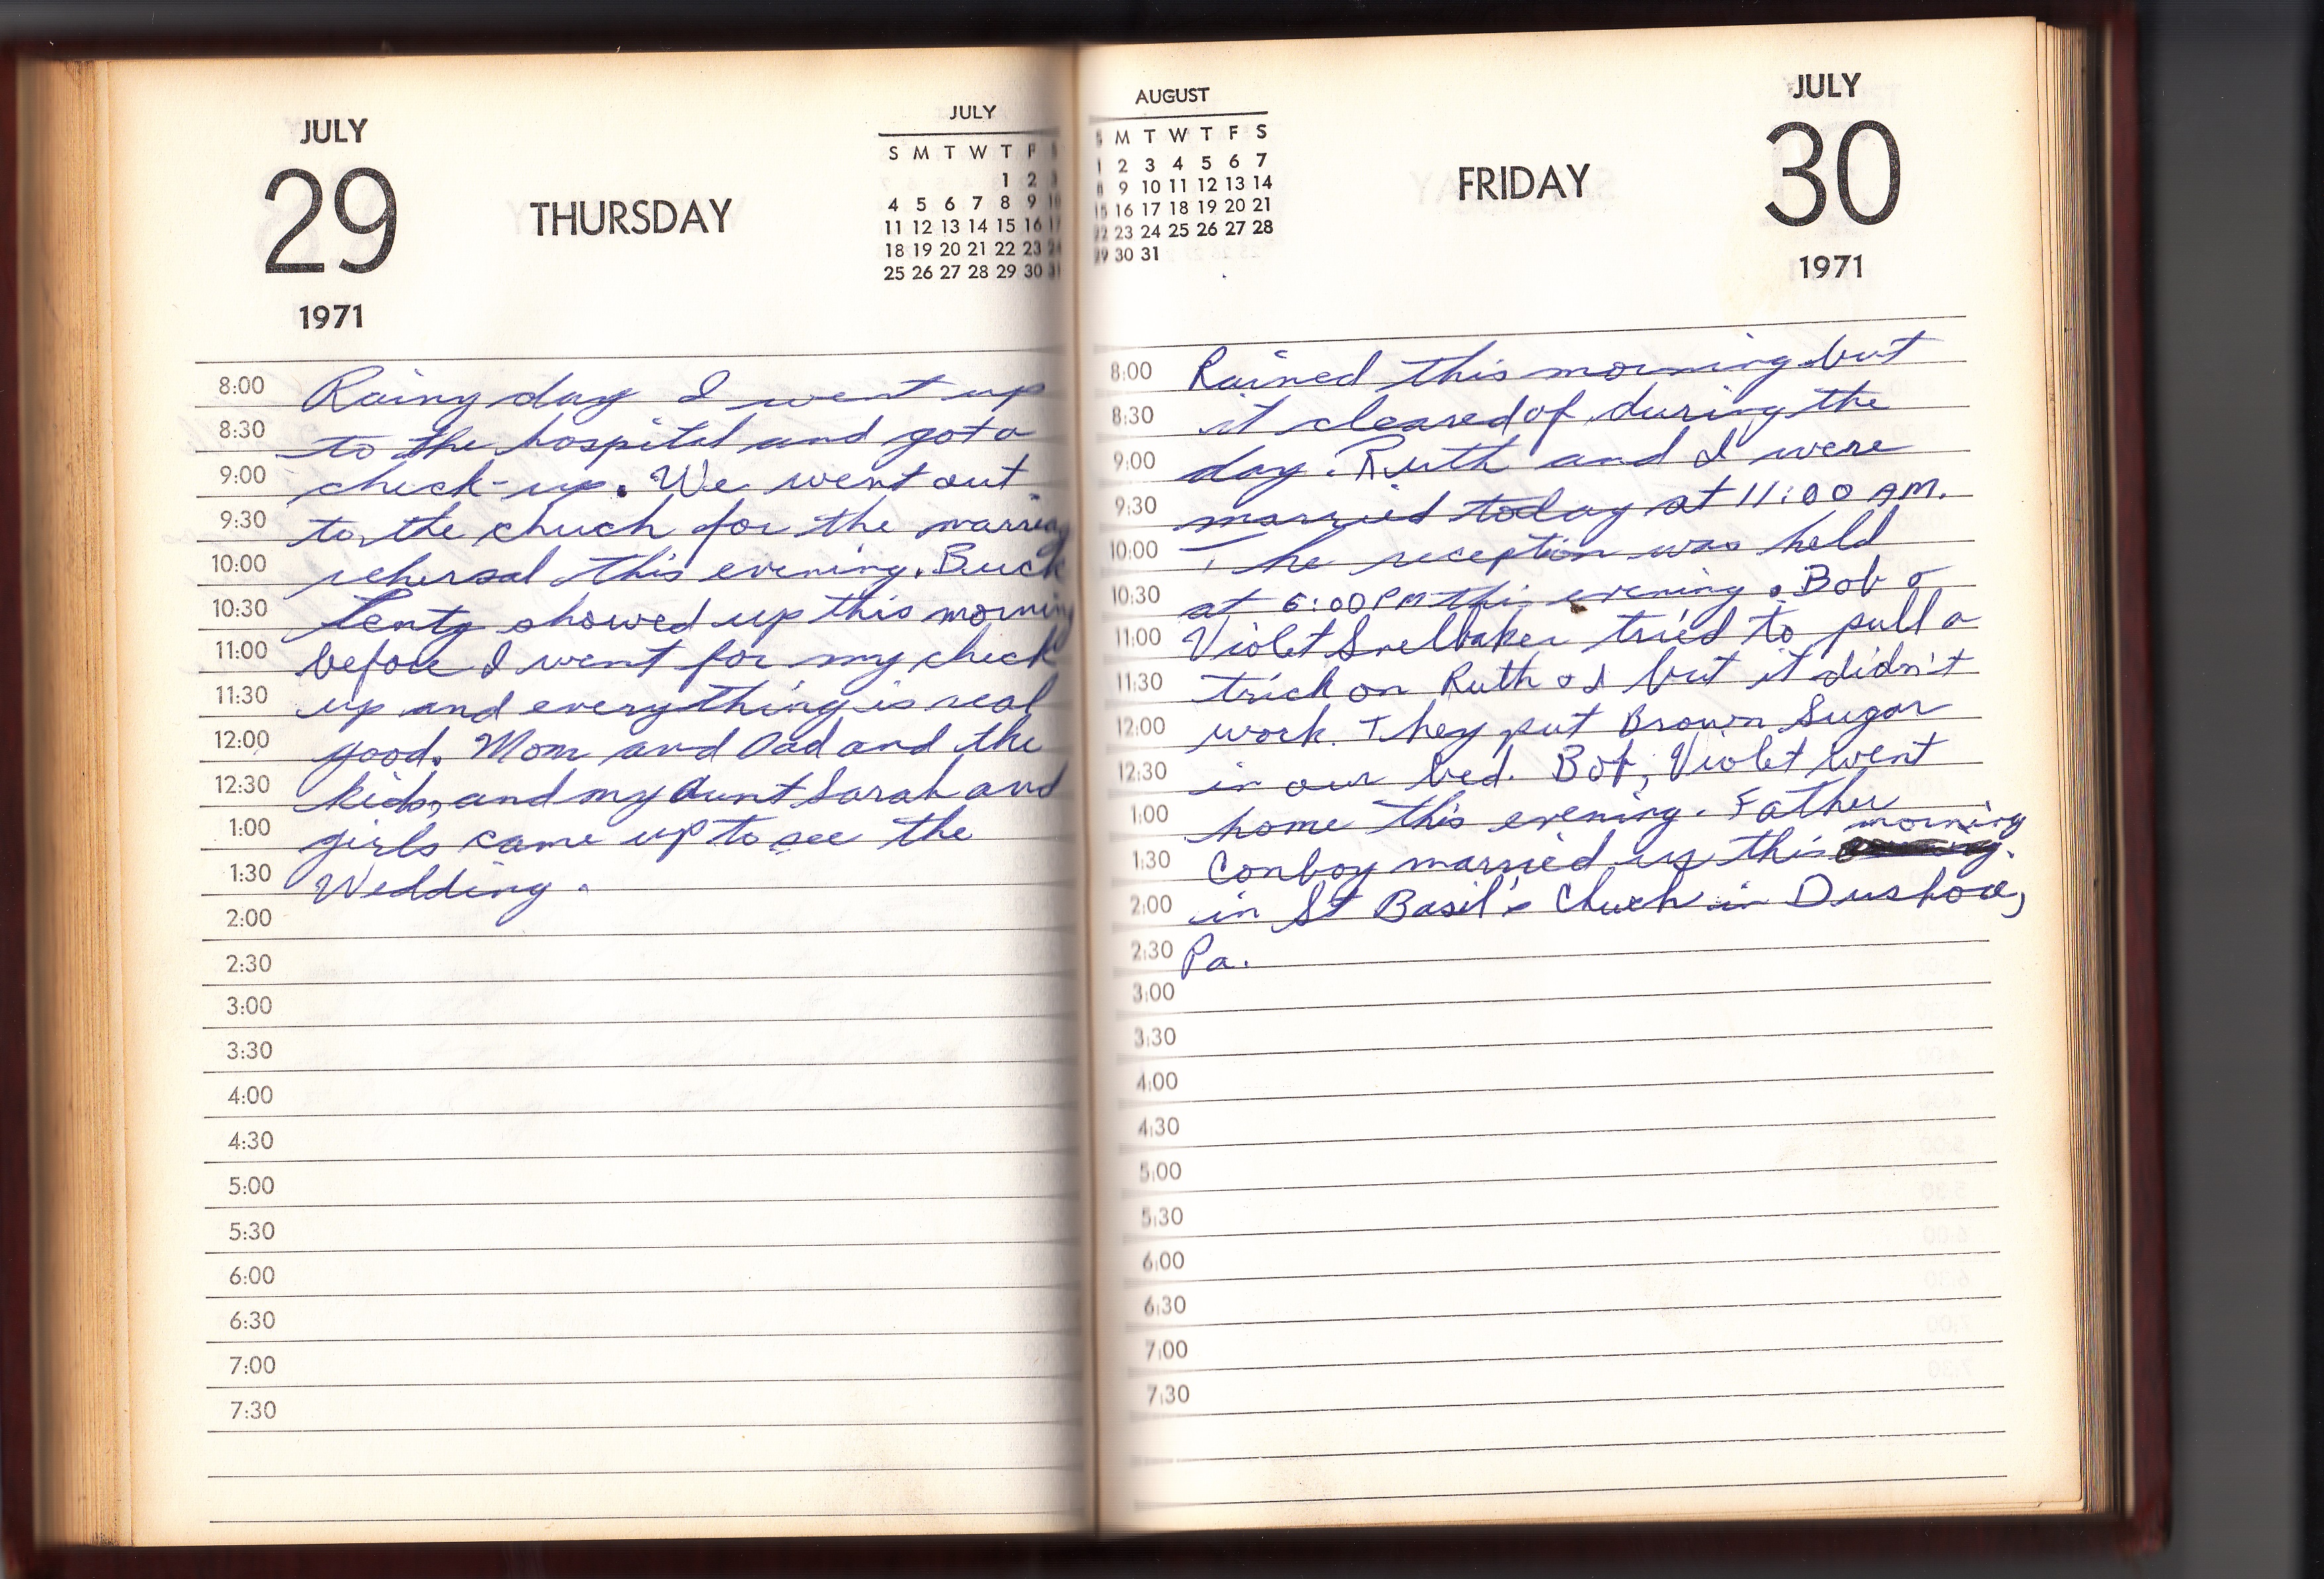 JULY
29
1971
THURSDAY
JULY
S M T W T F S
1 2 3
4 5 6 7 8 9 10
11 12 13 14 15 16 17
18 19 20 21 22 23 24
25 26 27 28 29 30 31
8:00 Rainy day I went up
8:30 to the hospital and got a
9:00 check-up. We went out
9:30 to the chuch for the marriag
10:00 rehersal this evening. Buck
10:30 showed up this morning
11:00 before I went for my check
11:30 up and everything is real
12:00 good. Mom and Dad and the
12:30 kids, and my Aunt Sarah and
1:00 girls came up to see the
1:30 Wedding.
2:00
2:30
3:00
3:30
4:00
4:30
5:00
5:30
6:00
6:30
7:00
7:30
AUGUST
S M T W T F S
1 2 3 4 5 6 7
8 9 10 11 12 13 14
15 16 17 18 19 20 21
22 23 24 25 26 27 28
29 30 31
FRIDAY
JULY
30
1971
8:00 Rained this morning but
8:30 it cleared of during the
9:00 day. Ruth and I were
9:30 married today at 11:00 AM.
10:00 The reception was held
10:30 at 6:00 PM this evening. Bob &
11:00 Violet Snelbaker tried to pull a
11:30 trick on Ruth & I but it didn't
12:00 work. They put Brown Sugar
12:30 in our bed. Bob, Violet went
1:00 home this evening. Father
morning
1:30 Conboy married us this
2:00 in St Basil's Chuch in Dushore,
2:30 Pa.
3:00
3:30
4:00
4:30
5:00
5:30
6:00
6:30
7:00
7:30